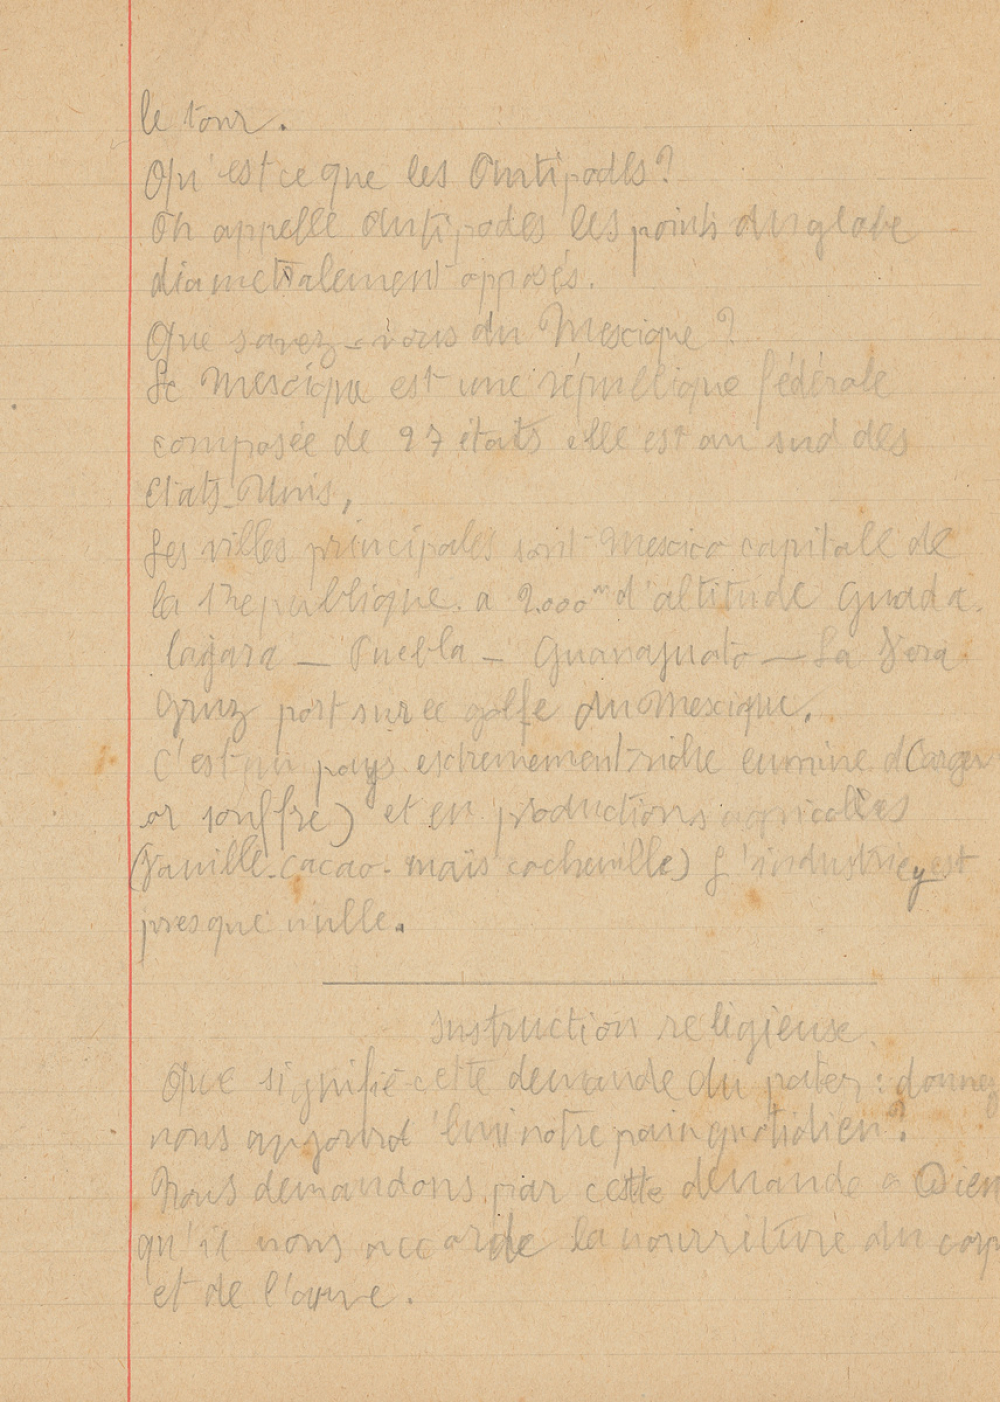 le tour.
Qu'est ce que les Antipodes?
On appelle Antipodes les points du globe
diametralement opposés.
Que savez-vous du Mexique?
Le Mexique est une république fédérale
composée de 27 états elle est au sud des
Etats-Unis,
Les villes principales sont Mexico capitale de
la Republique. a 2.000m d'altitude Guada.
lagara — Puebla — Guanaguato — La Vera
Cruz port sur le golfe du Mexique.
C'est un pays extremement riche en mine d(argen
or souffre) et en productions agricoles
(Vanille. cacao. maïs cochenille) L'industrie y est
presque nulle.
Instruction religieuse
Que signifie cette demande du pater : donnez
nous aujourd'hui notre pain quotidien?
Nous demandons par cette demande a Dieu
qu'il nous accorde la nourriture du corp
et de l'ame.